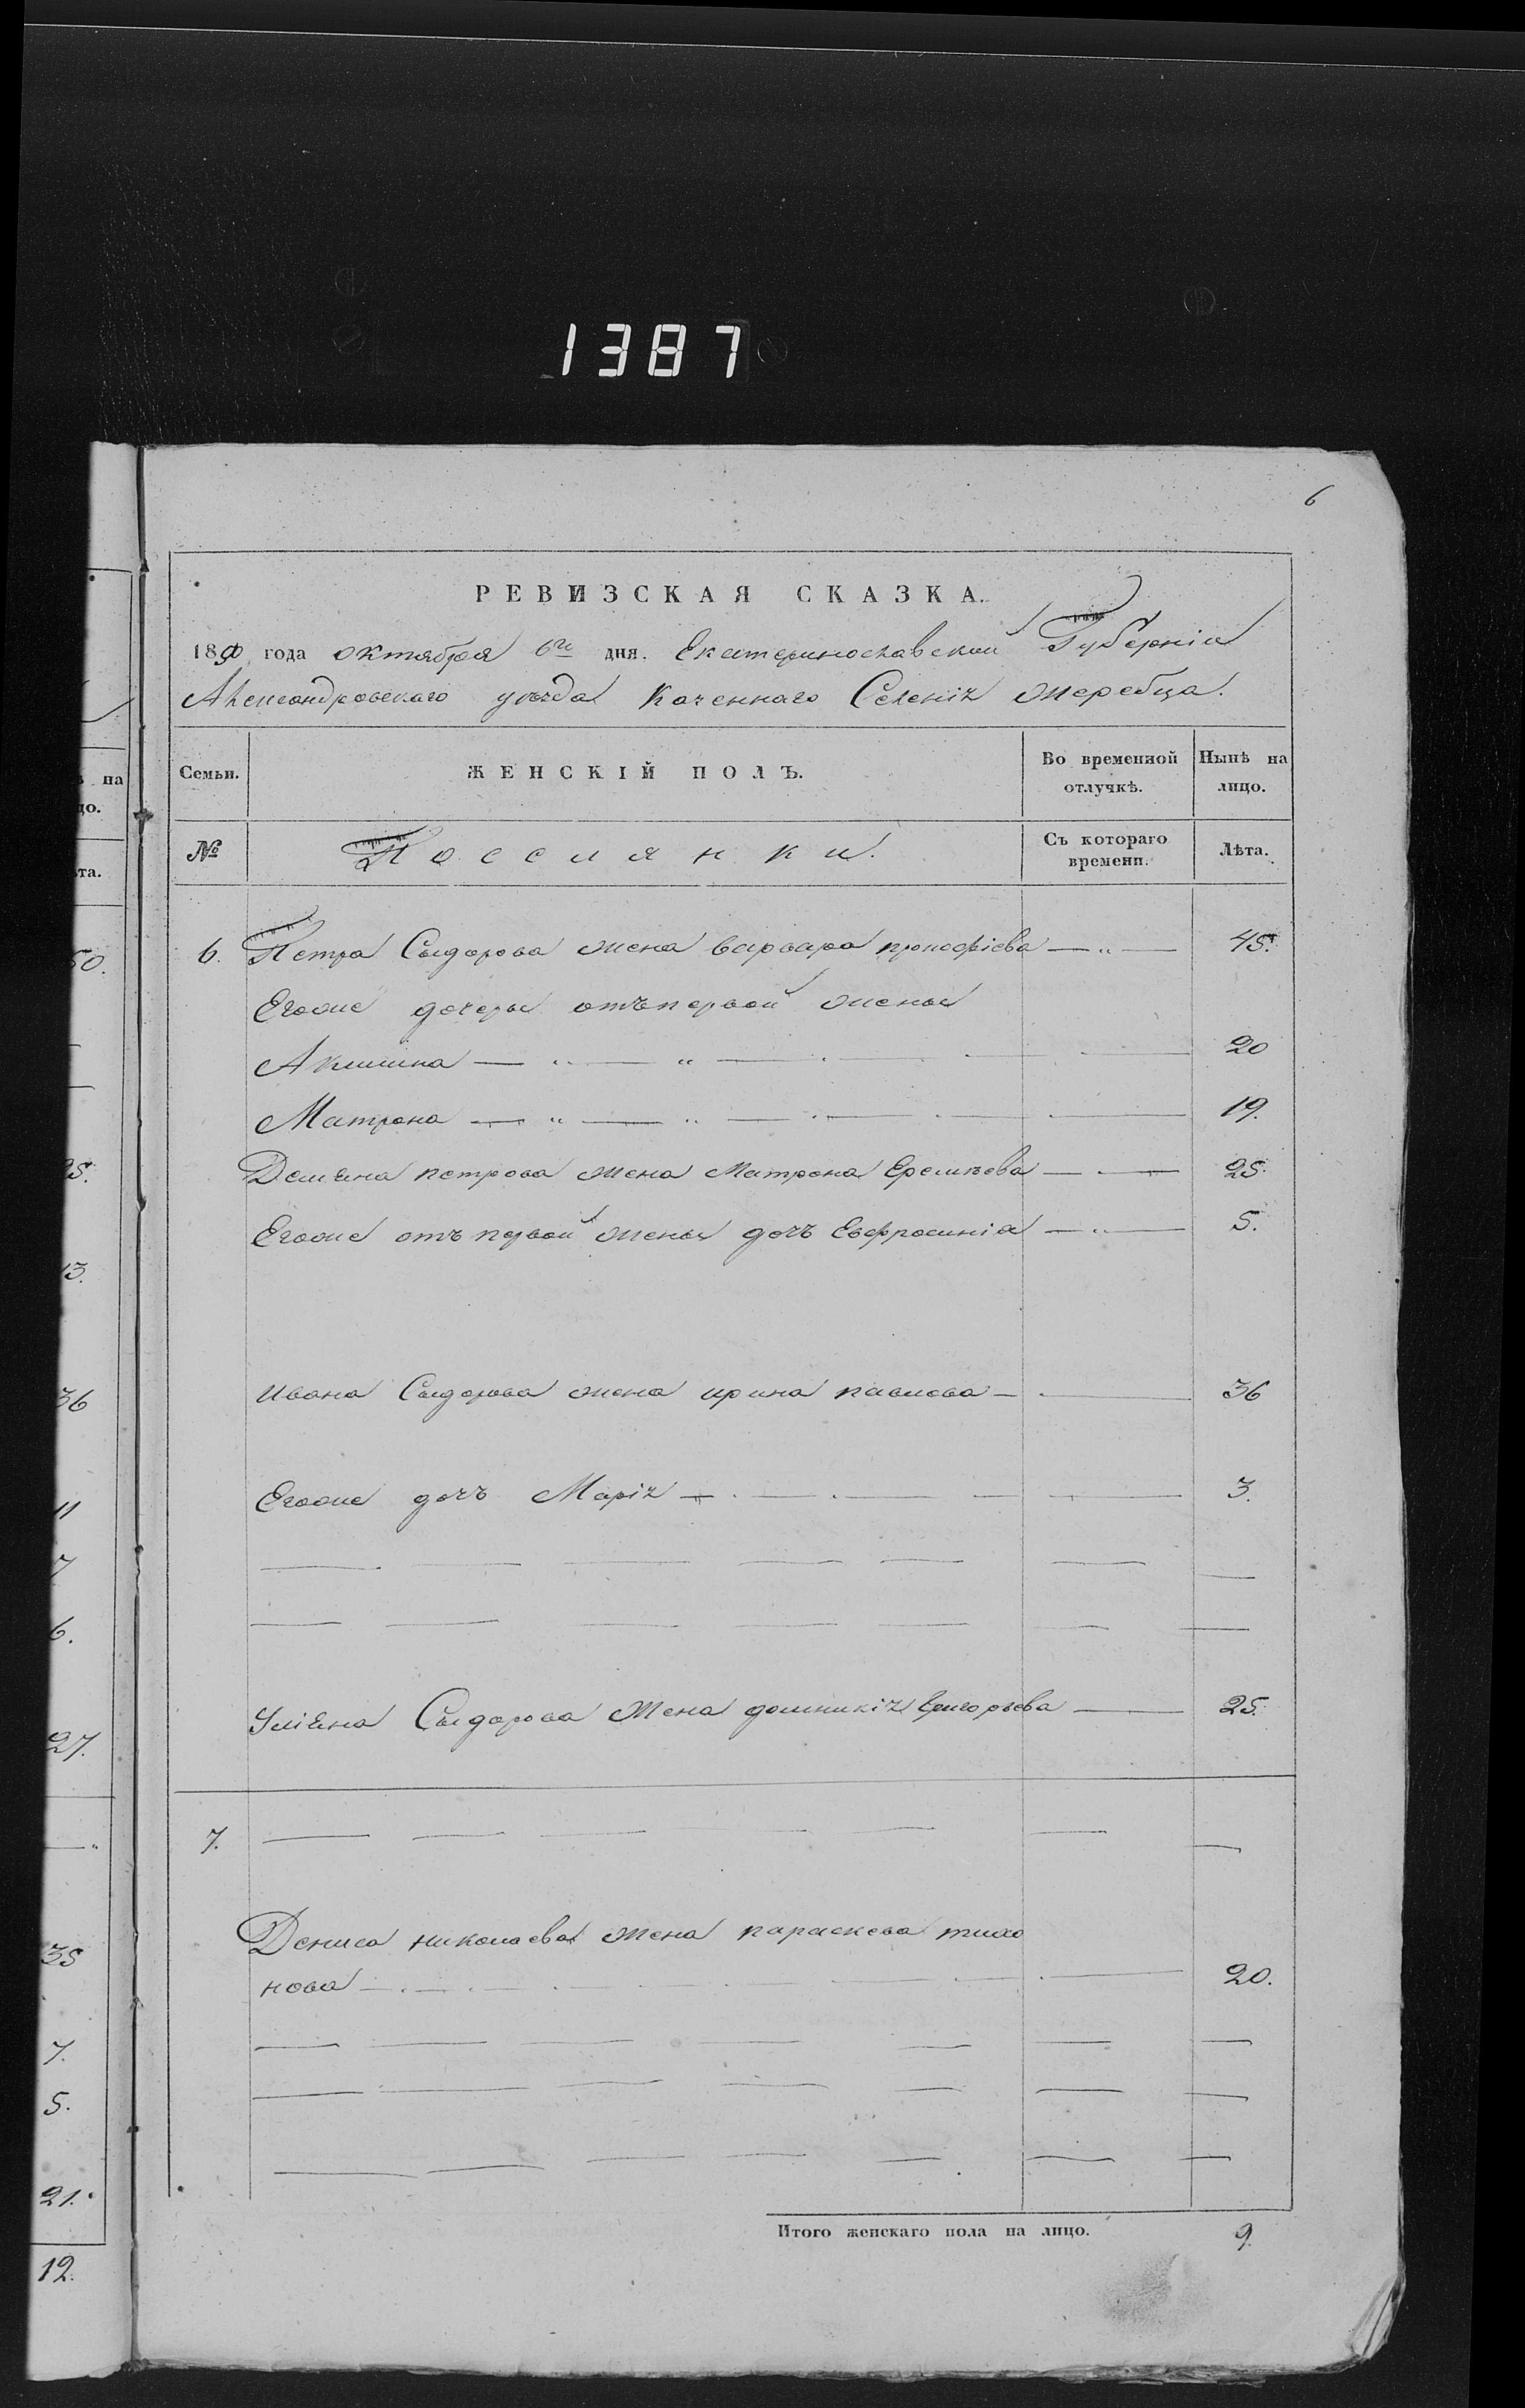 1387
6
РЕВИЗСКАЯ СКАЗКА.
1850 года октября 6го дня. Екатеринославской Губерніи
Александровскаго уѣзда Казеннаго Селенія Жеребца.
Семьи. ЖЕНСКІЙ ПОЛЪ. Во временной отлучкѣ. Нынѣ на лицо.
№ Поселянки. Съ котораго времени. Лѣта.
6. Петра Сыдорова жена варвара прокофіева — „ — 45.
Егоже дочеры отъ первой жены
Акилина — „ — „ — 20
Матрона — „ — „ — 19.
Демяна петрова жена Матрона Еремѣева — 25
Егоже отъ первой жены дочъ Евфросинія — „ — 5.
Ивана Сыдорова жена ирина павлова — 36
Егоже дочъ Марія — 3.
Уліяна Сыдорова жена домникія Григорьева — 25.
7. —
Дениса николаева жена параскева тихо
нова — 20.
Итого женскаго пола на лицо. 9.
на
цо.
та.
50.
25.
13.
36
11
7
6.
27.
35
7.
5.
21.
12.